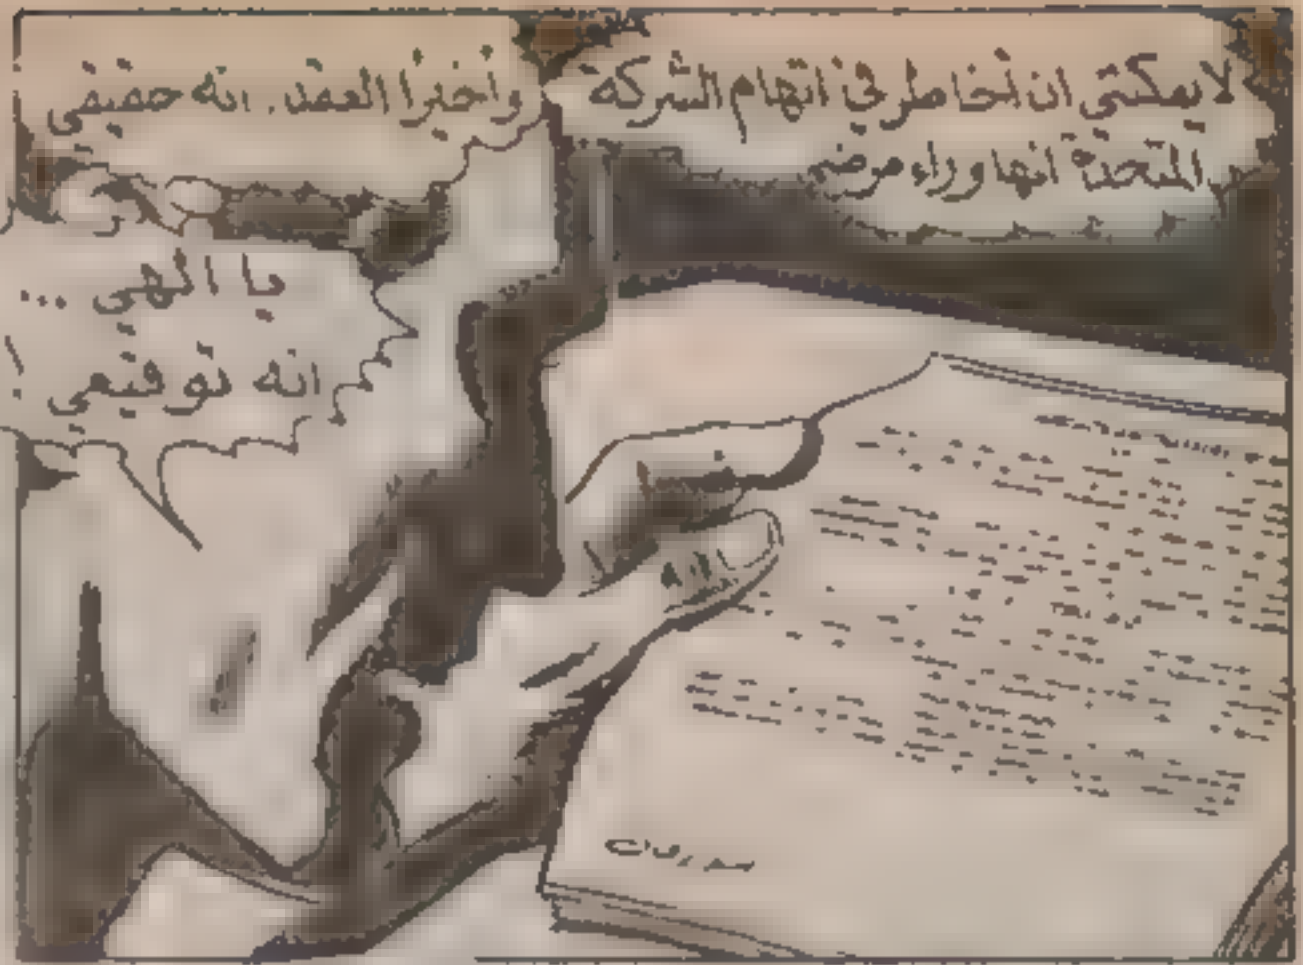 لا يمكنني ان أخاطر في اتهام الشركة
المتحدة انها وراء مرضي
وأخيرا العقد. انه حقيقي
يا الهي ...
انه توقيعي !